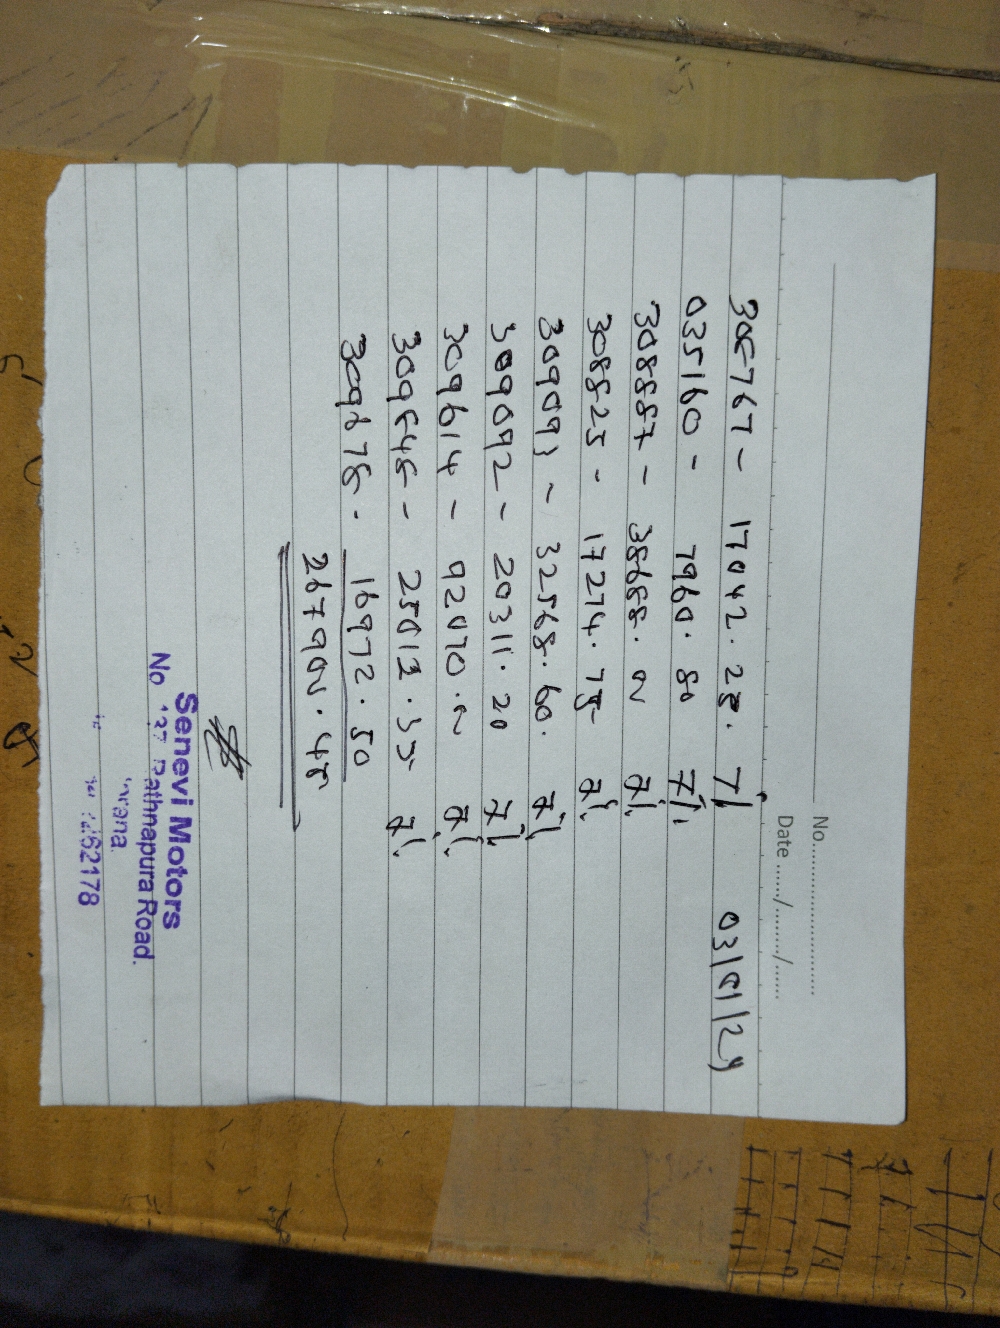 No.
Date ....../......../......
03/01/24
308767 - 17042.25. 7%
035160 - 7960.80 7%
308887 - 38688.00 7%
308825 - 17274.75 7%
309093 - 32568.60. 7%
309092 - 20311.20 7%
309614 - 92070.00 7%
309648 - 25012.35 7%
309678. 16972.50
267900.45
Senevi Motors
No 137 Rathnapura Road.
262178